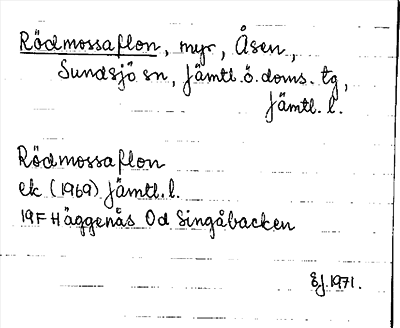 Rödmossaflon, myr, Åsen,
Sundsjö sn, Jämtl. ö. doms. tg,
Jämtl. l.
Rödmossaflon
ek (1969) Jämtl. l.
19F Häggenås 0d Singåbacken
EJ. 1971.